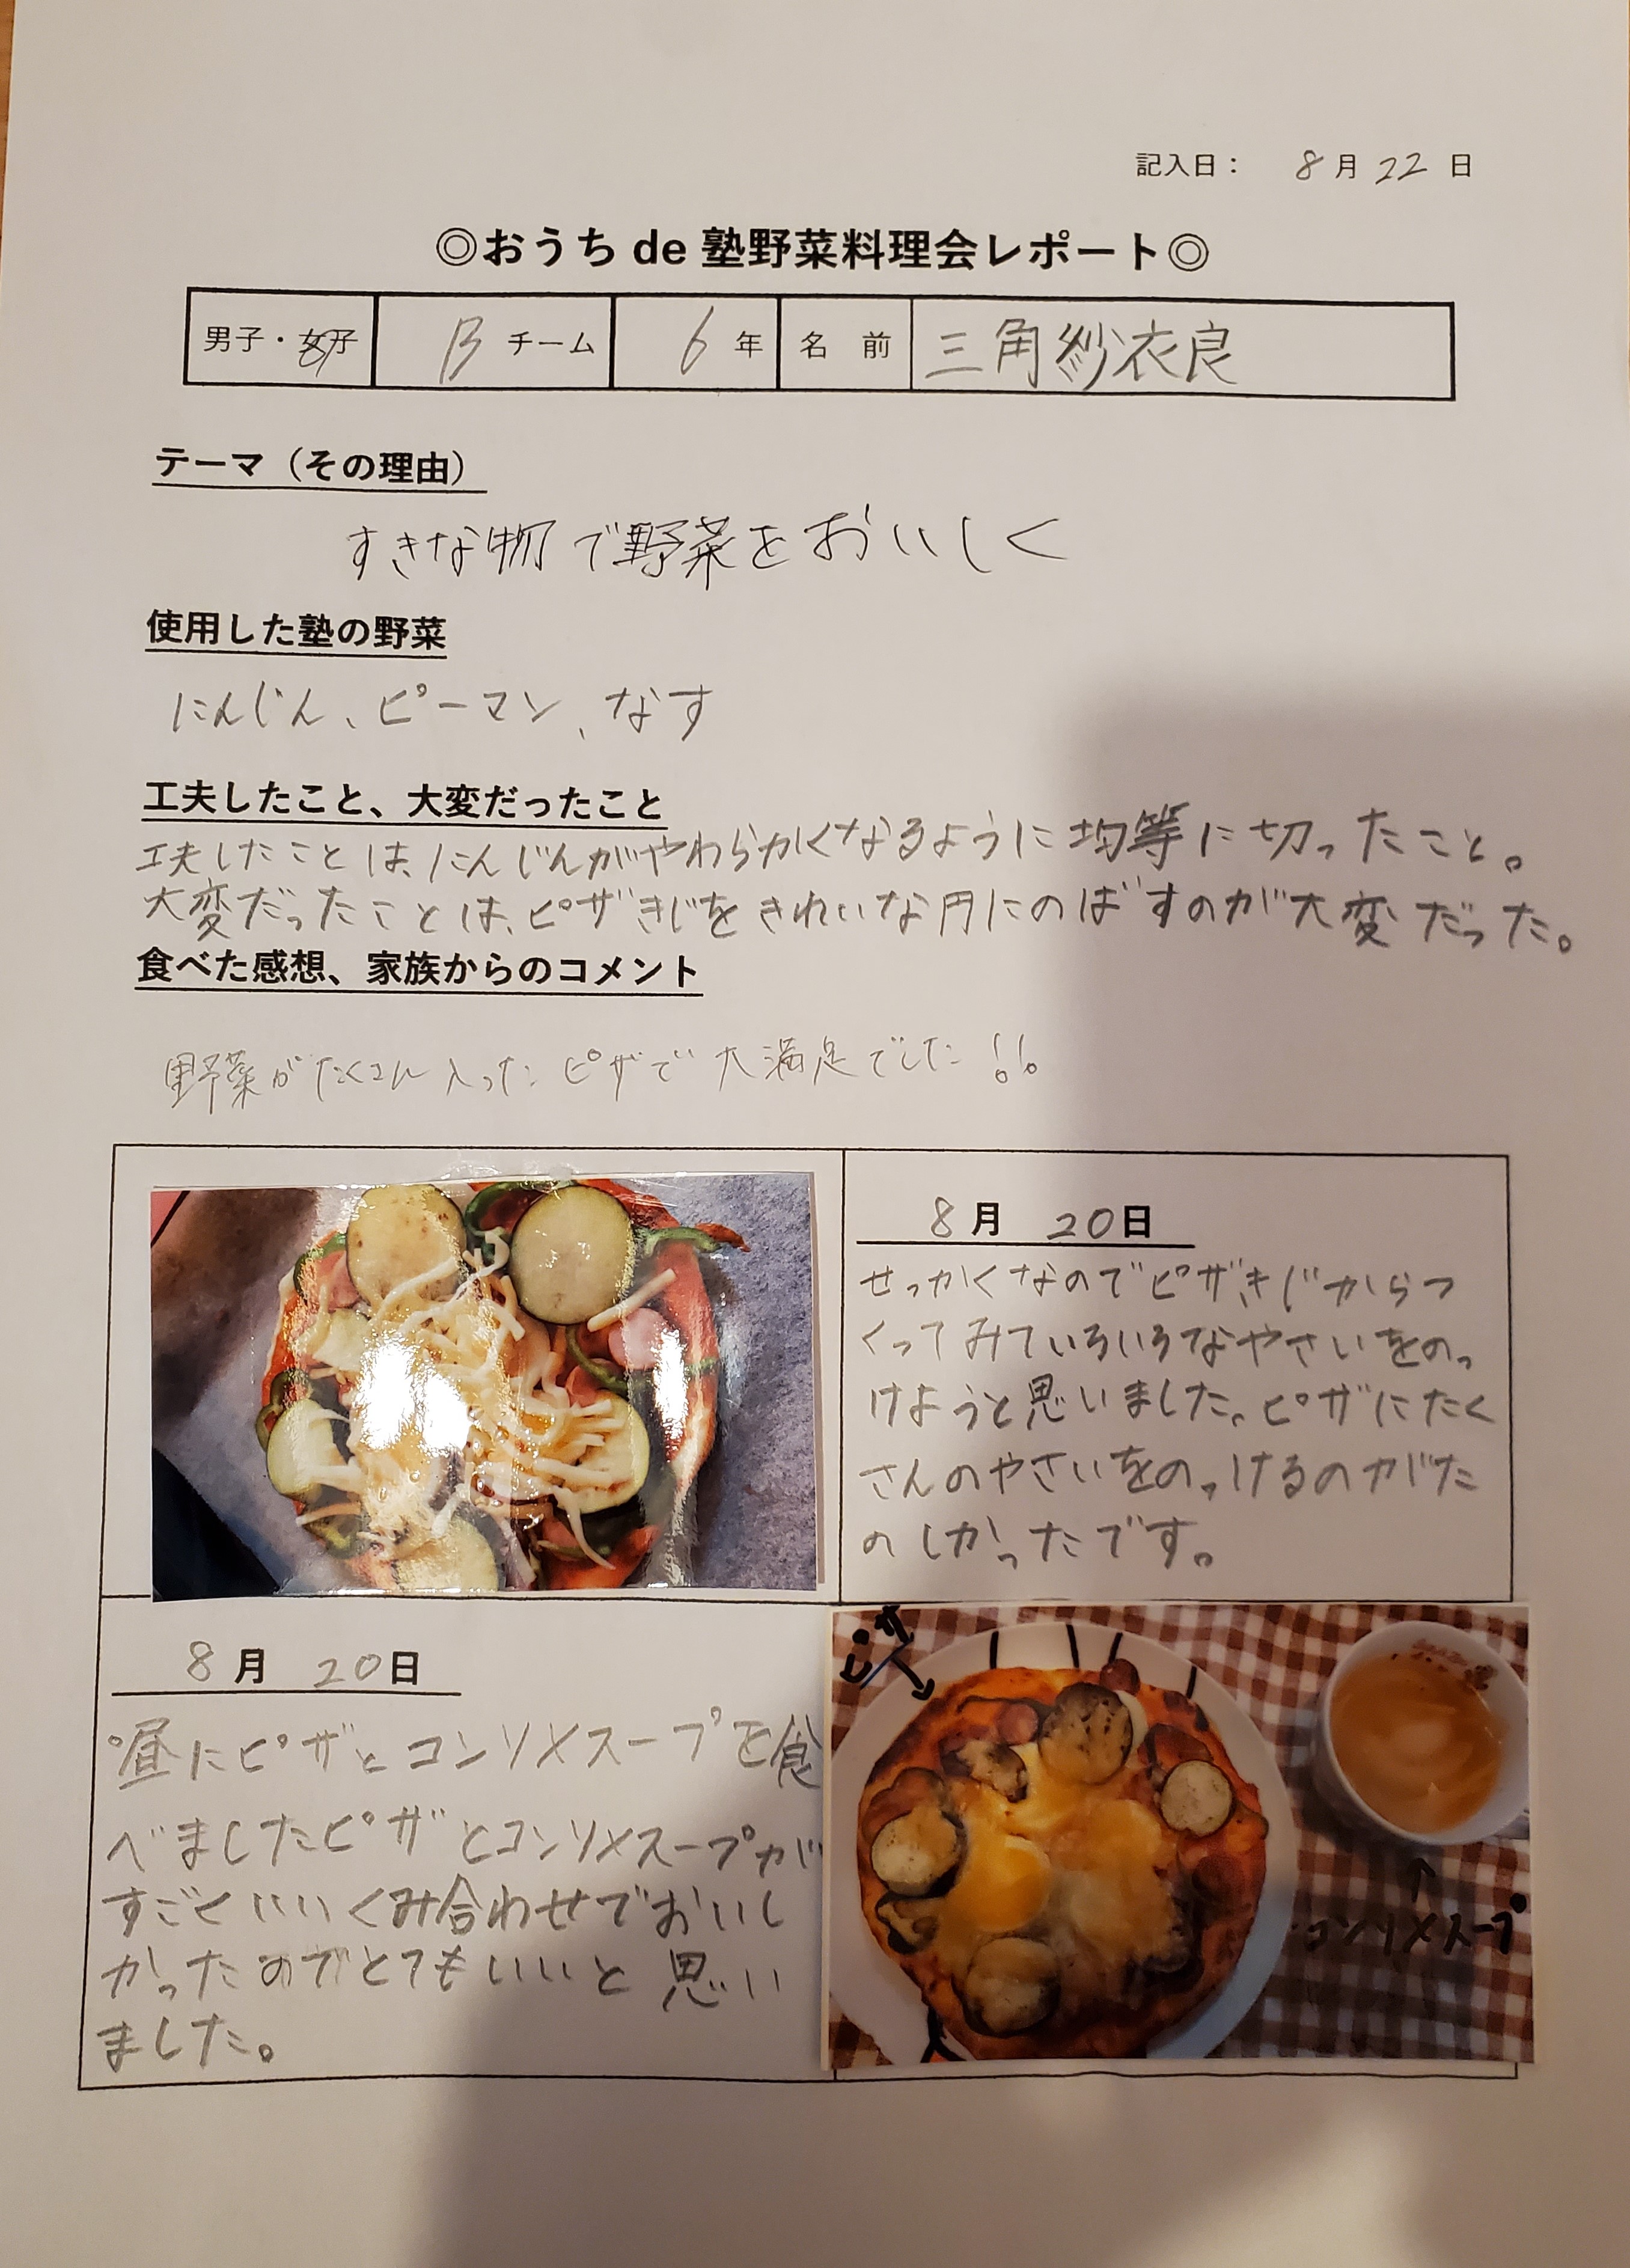 記入日： 8月22日
◎おうち de 塾野菜料理会レポート◎
男子・女子 Bチーム 6年 名前 三角紗衣良
テーマ（その理由）
すきな物で野菜をおいしく
使用した塾の野菜
にんじん、ピーマン、なす
工夫したこと、大変だったこと
工夫したことは、にんじんがやわらかくなるように均等に切ったこと。
大変だったことは、ピザきじをきれいな円にのばすのが大変だった。
食べた感想、家族からのコメント
野菜がたくさん入ったピザで大満足でした!!
8月 20日
せっかくなのでピザきじからつ
くってみていろいろなやさいをのっ
けようと思いました。ピザにたく
さんのやさいをのっけるのがた
のしかったです。
8月 20日
昼にピザとコンソメスープを食
べましたピザとコンソメスープが
すごくいいくみ合わせでおいし
かったのでとてもいいと思い
ました。
ピザ
コンソメスープ